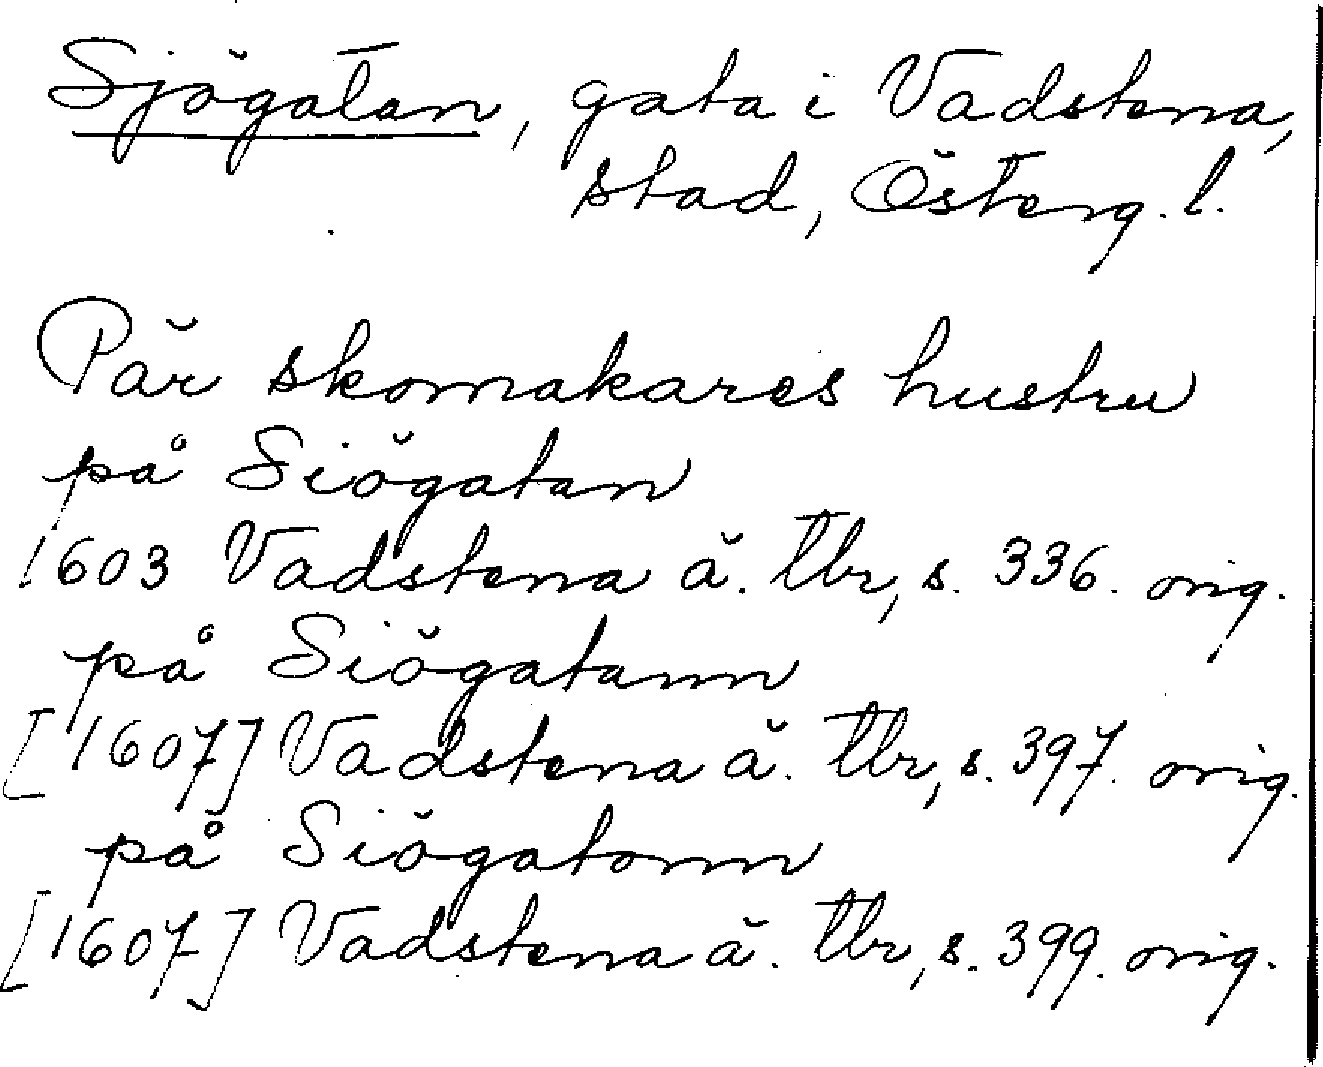 Sjögatan, gata i Vadstena,
stad, Österg. l.
Pär skomakares hustru
på Siögatan
1603 Vadstena ä. tbr, s. 336. orig.
på Siögatann
[1607] Vadstena ä. tbr, s. 397. orig.
på Siögatonn
[1607] Vadstena ä. tbr, s. 399. orig.